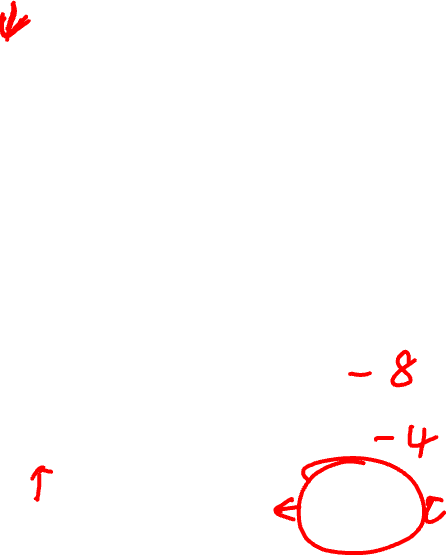 - 8
- 4